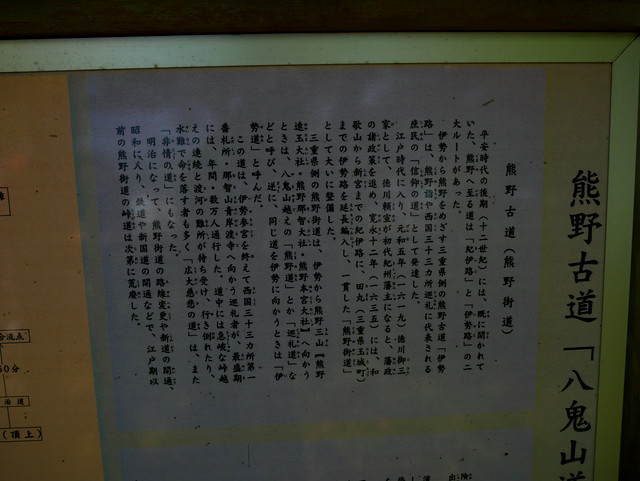 熊野古道「八鬼山道
熊野古道（熊野街道）
平安時代の後期（十二世紀）には、既に開かれて
いた、熊野へ至る道は「紀伊路」と「伊勢路」の二
大ルートがあった。
伊勢から熊野をめざす三重県側の熊野古道「伊勢
路」は、熊野詣や西国三十三カ所巡礼に代表される
庶民の「信仰の道」として発達した。
江戸時代に入り、元和五年（一六一九）徳川御三
家として、徳川頼宣が初代紀州藩主になると、藩政
の諸政策を進め、寛永十二年（一六三五）には、和
歌山から新宮までの紀伊路に、田丸（三重県玉城町）
までの伊勢路を延長編入し、一貫した「熊野街道」
として大いに整備した。
三重県側の熊野街道は、伊勢から熊野三山【熊野
速玉大社・熊野那智大社・熊野本宮大社】へ向かう
ときは、八鬼山越えの「熊野道」とか「巡礼道」な
どと呼び、逆に、同じ道を伊勢に向かうときは「伊
勢道」と呼んだ。
この道は、伊勢参宮を終えて西国三十三カ所第一
番札所・那智山青岸渡寺へ向かう巡礼者が、最盛期
には、年間・数万人通行した。道中には急峻な峠越
えの連続と渡河の難所が待ち受け、行き倒れたり、
水難で命を落す者も多く「広大慈悲の道」は、また
「非情の道」にもなった。
明治になって、熊野街道の路線変更や新道の開通、
昭和に入り、鉄道や新国道の開通などで、江戸期以
前の熊野街道の峠道は次第に荒廃した。
合流点
50分
沿道
（頂上）